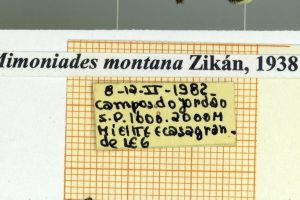 Mimoniades montana Zikán, 1938
8-12-II-1982-
Campos do Jordão
S.P. 1600-2000M
Mielke & Casagran-
de leg